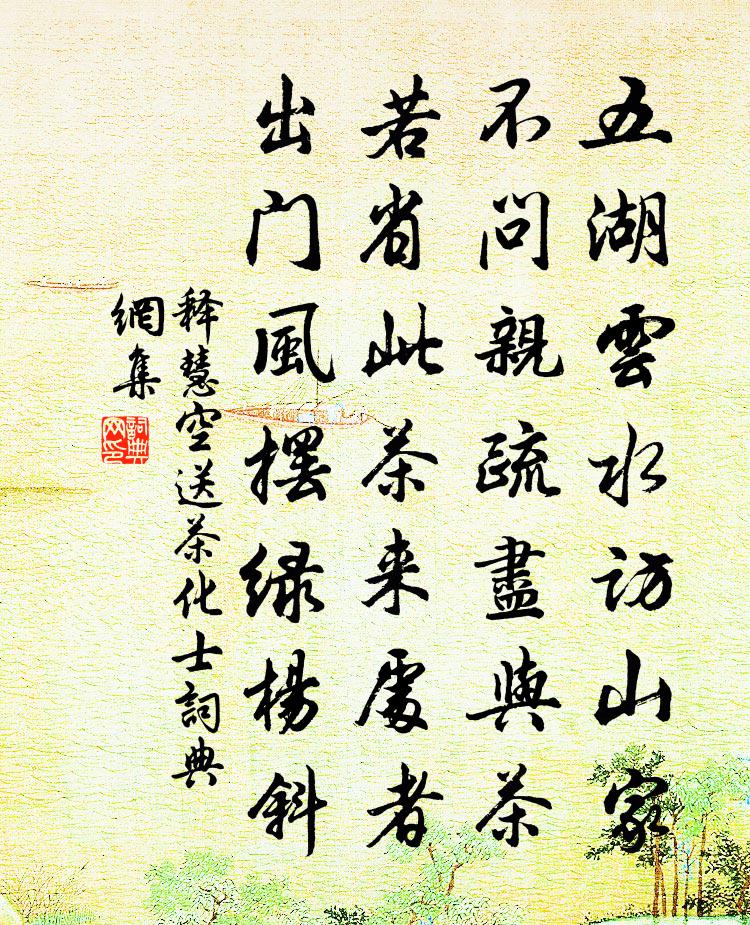 五湖雲水访山家
不问親疏盡與茶
若省此茶来處者
出门風擺绿楊斜
释慧空送茶化士詞典
網集
詞典
网印